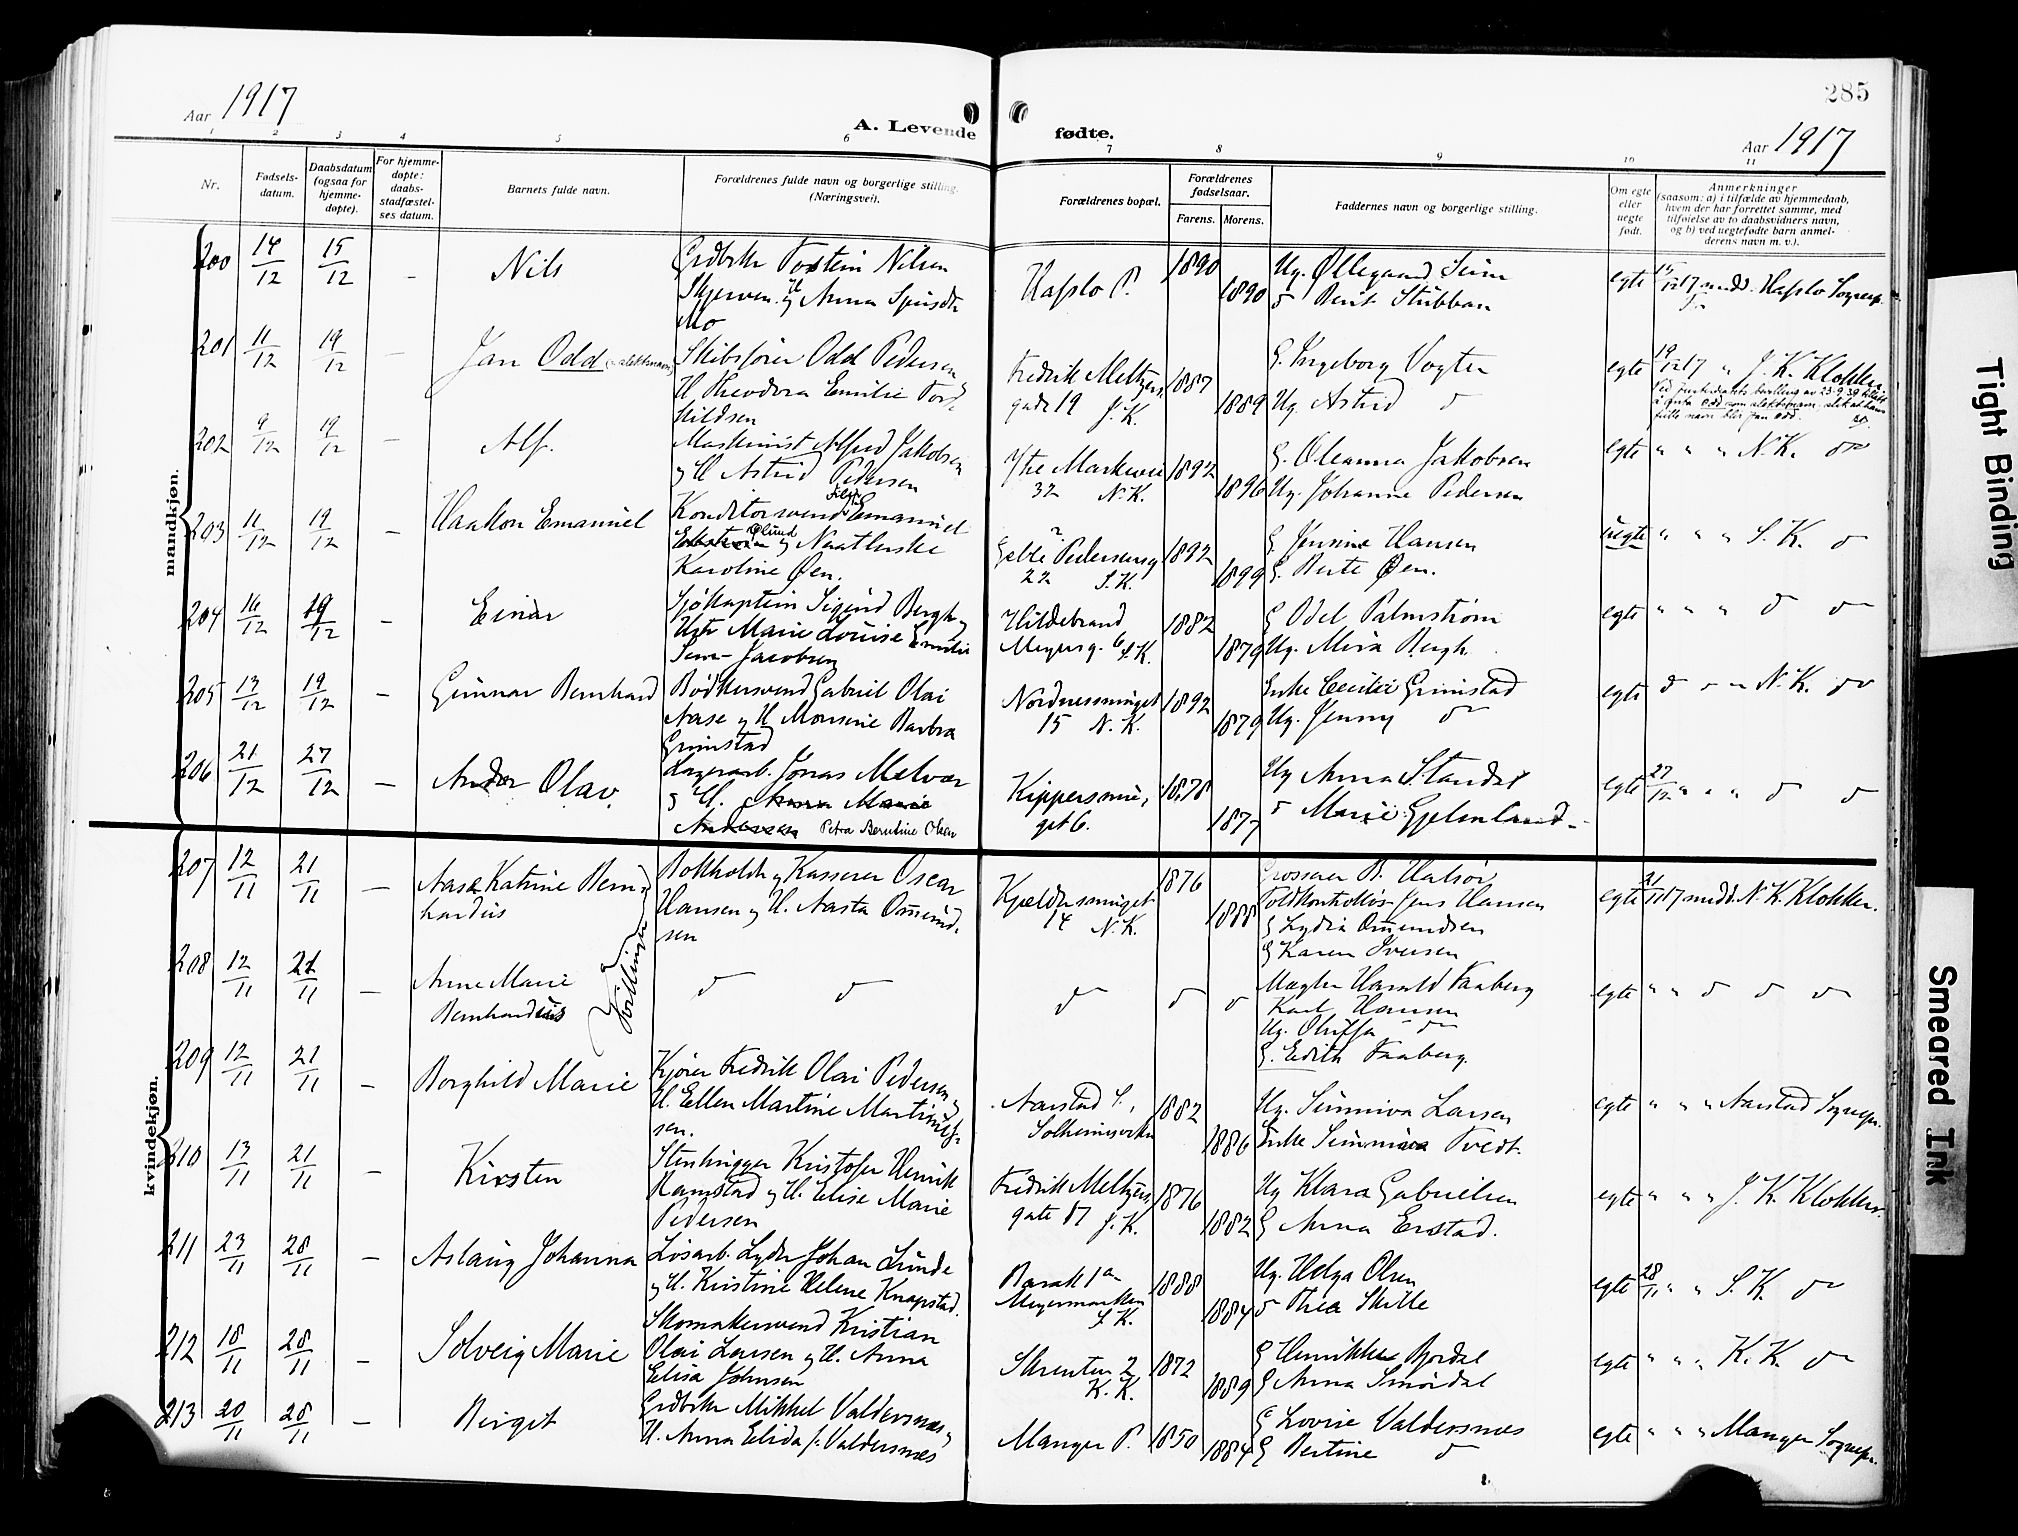 285
Aar 1917
A. Levende fødte.
Aar 1917
1 2 3 4 5 6 7 8 9 10 11
Nr.
Fødsels-
datum.
Daabsdatum
(ogsaa for
hjemme-
døpte).
For hjemme-
døpte:
daabs-
stadfæstel-
ses datum.
Barnets fulde navn.
Forældrenes fulde navn og borgerlige stilling.
(Næringsvei).
Forældrenes bopæl.
Forældrenes
fødselsaar.
Farens. Morens.
Faddernes navn og borgerlige stilling.
Om egte
eller
uegte
født.
Anmerkninger
(saasom: a) i tilfælde av hjemmedaab,
hvem der har forrettet samme, med
tilføielse av to daabsvidners navn,
og b) ved uegtefødte barn anmel-
derens navn m. v.).
mandkjøn.
200 14/12 15/12 - Nils
Grdbrk Torstein Nilsen
Skjerven og H Anna Sjursdtr
Mo
Hafslo P. 1890 1890
Ug. Øllegaard Seim
d Berit Stubban
egte 15/12 17 medd. Hafslo Sognepr.
201 11/12 19/12 - Jan Odd
Skibsfører Odd Pedersen
H. Theodora Emilie Tord-
kildsen
Fredrik Meltzers
gade 19 J. K. 1887 1889
G. Ingeborg Vogter
Ug. Astrid d
egte 19/12 17 " J. K. Klokker
202 9/12 19/12 - Alf.
Maskinist Alfred Jakobsen
og H Astrid Pedersen
Ytre Markevei
32 N. K. 1892 1896
G. Oleanna Jakobsen
Ug. Johanne Pedersen
egte " " " N. K. d
203 11/12 19/12 - Haakon Emanuel
Konditorsvend Emanuel
Karoline Øen.
Gable Pedersensg
22 S. K. 1892 1899
G. Jennine Hansen
G. Berte Øen.
uegte " " " S. K. d
204 16/12 19/12 - Einar
Sjøkaptein Sigurd Bergh og
Hstr Marie Louise Emilie
Sem-Jacobsen
Hildebrand
Meyersg. 6 S. K. 1882 1879
G Odel Palmstrøm
Ug. Mira Bergh.
egte " " " d d
205 13/12 19/12 - Gunnar Bernhard
Bødkersvend Gabriel Olai
Aase og H Monsine Barbra
Grimstad
Nordnessmuget
15 N. K. 1892 1879
Enke Cecilie Grimstad
Ug. Jenny d
egte d " " N. K. d
206 21/12 27/12 - Andor Olav.
Lagerarb. Jonas Melvær
og H. Anna Marie
Andersen Petra Berntine Olsen
Kippersmu-
get 6. 1878 1877
Ug Anna Standal
d Marie Gjelmland
egte 27/12 " " d d
kvindekjøn.
207 12/11 21/11 - Aasa Katrine Bern-
hardus
Tvillinger
Bokholder og Kasserer Oscar
Hansen og H. Aasta Omund-
sen
Kjeldersmuget
14 N. K. 1876 1888
Grosserer B. Hatsør
Toldkontrollør Jens Hansen
G Lydia Omundsen
G Karen Iversen
egte 21/11 17 medd. N. K. Klokker.
208 12/11 21/11 - Anne Marie
Bernhardus
d d d d d
Mægler Harald Faaberg
Karl Hansen
Ug. Oluffa d
G. Edith Faaberg.
egte " " d d d
209 12/11 21/11 - Borghild Marie
Kjører Fredrik Olai Pedersen og
H. Ellen Martine Martinus-
sen.
Aarstad S.,
Solheimsviken 1882 1886
Ug. Sunniva Larsen
Enke Sunniva Tvedt.
egte " " " Aarstad Sognepr.
210 13/11 21/11 - Kirsten
Stenhugger Kristofer Henrik
Ramstad og H. Elise Marie
Pedersen
Fredrik Meltzers
gate 87 J. K. 1876 1882
Ug Klara Gabrielsen
G Anna Erstad.
egte " " " J. K. Klokker.
211 23/11 28/11 - Aslaug Johanna
Løsarb. Lyder Johan Lunde
og H. Kristine Helene Knapstad.
Barak 1a
Meyermarken
S. K. 1888 1884
Ug. Helga Olsen
d Thea Skille
egte 28/11 " " S. K. d
212 18/11 28/11 - Solveig Marie
Skomakersvend Kristian
Olai Larsen og H. Anna
Elisa Johnsen
Skrenten 2
K. K. 1872 1889
G Henrikke Bjordal
G Anna Smørdal
egte " " " K. K. d
213 20/11 28/11 - Birgit
Grdbrk Mikkel Valdersnæs og
H. Anna Elida f. Valdersnæs
Manger P. 1850 1884
G Lovise Valdersnæs
G Bertine d
egte " " " Manger Sognepr.
Tight Binding
Smeared Ink